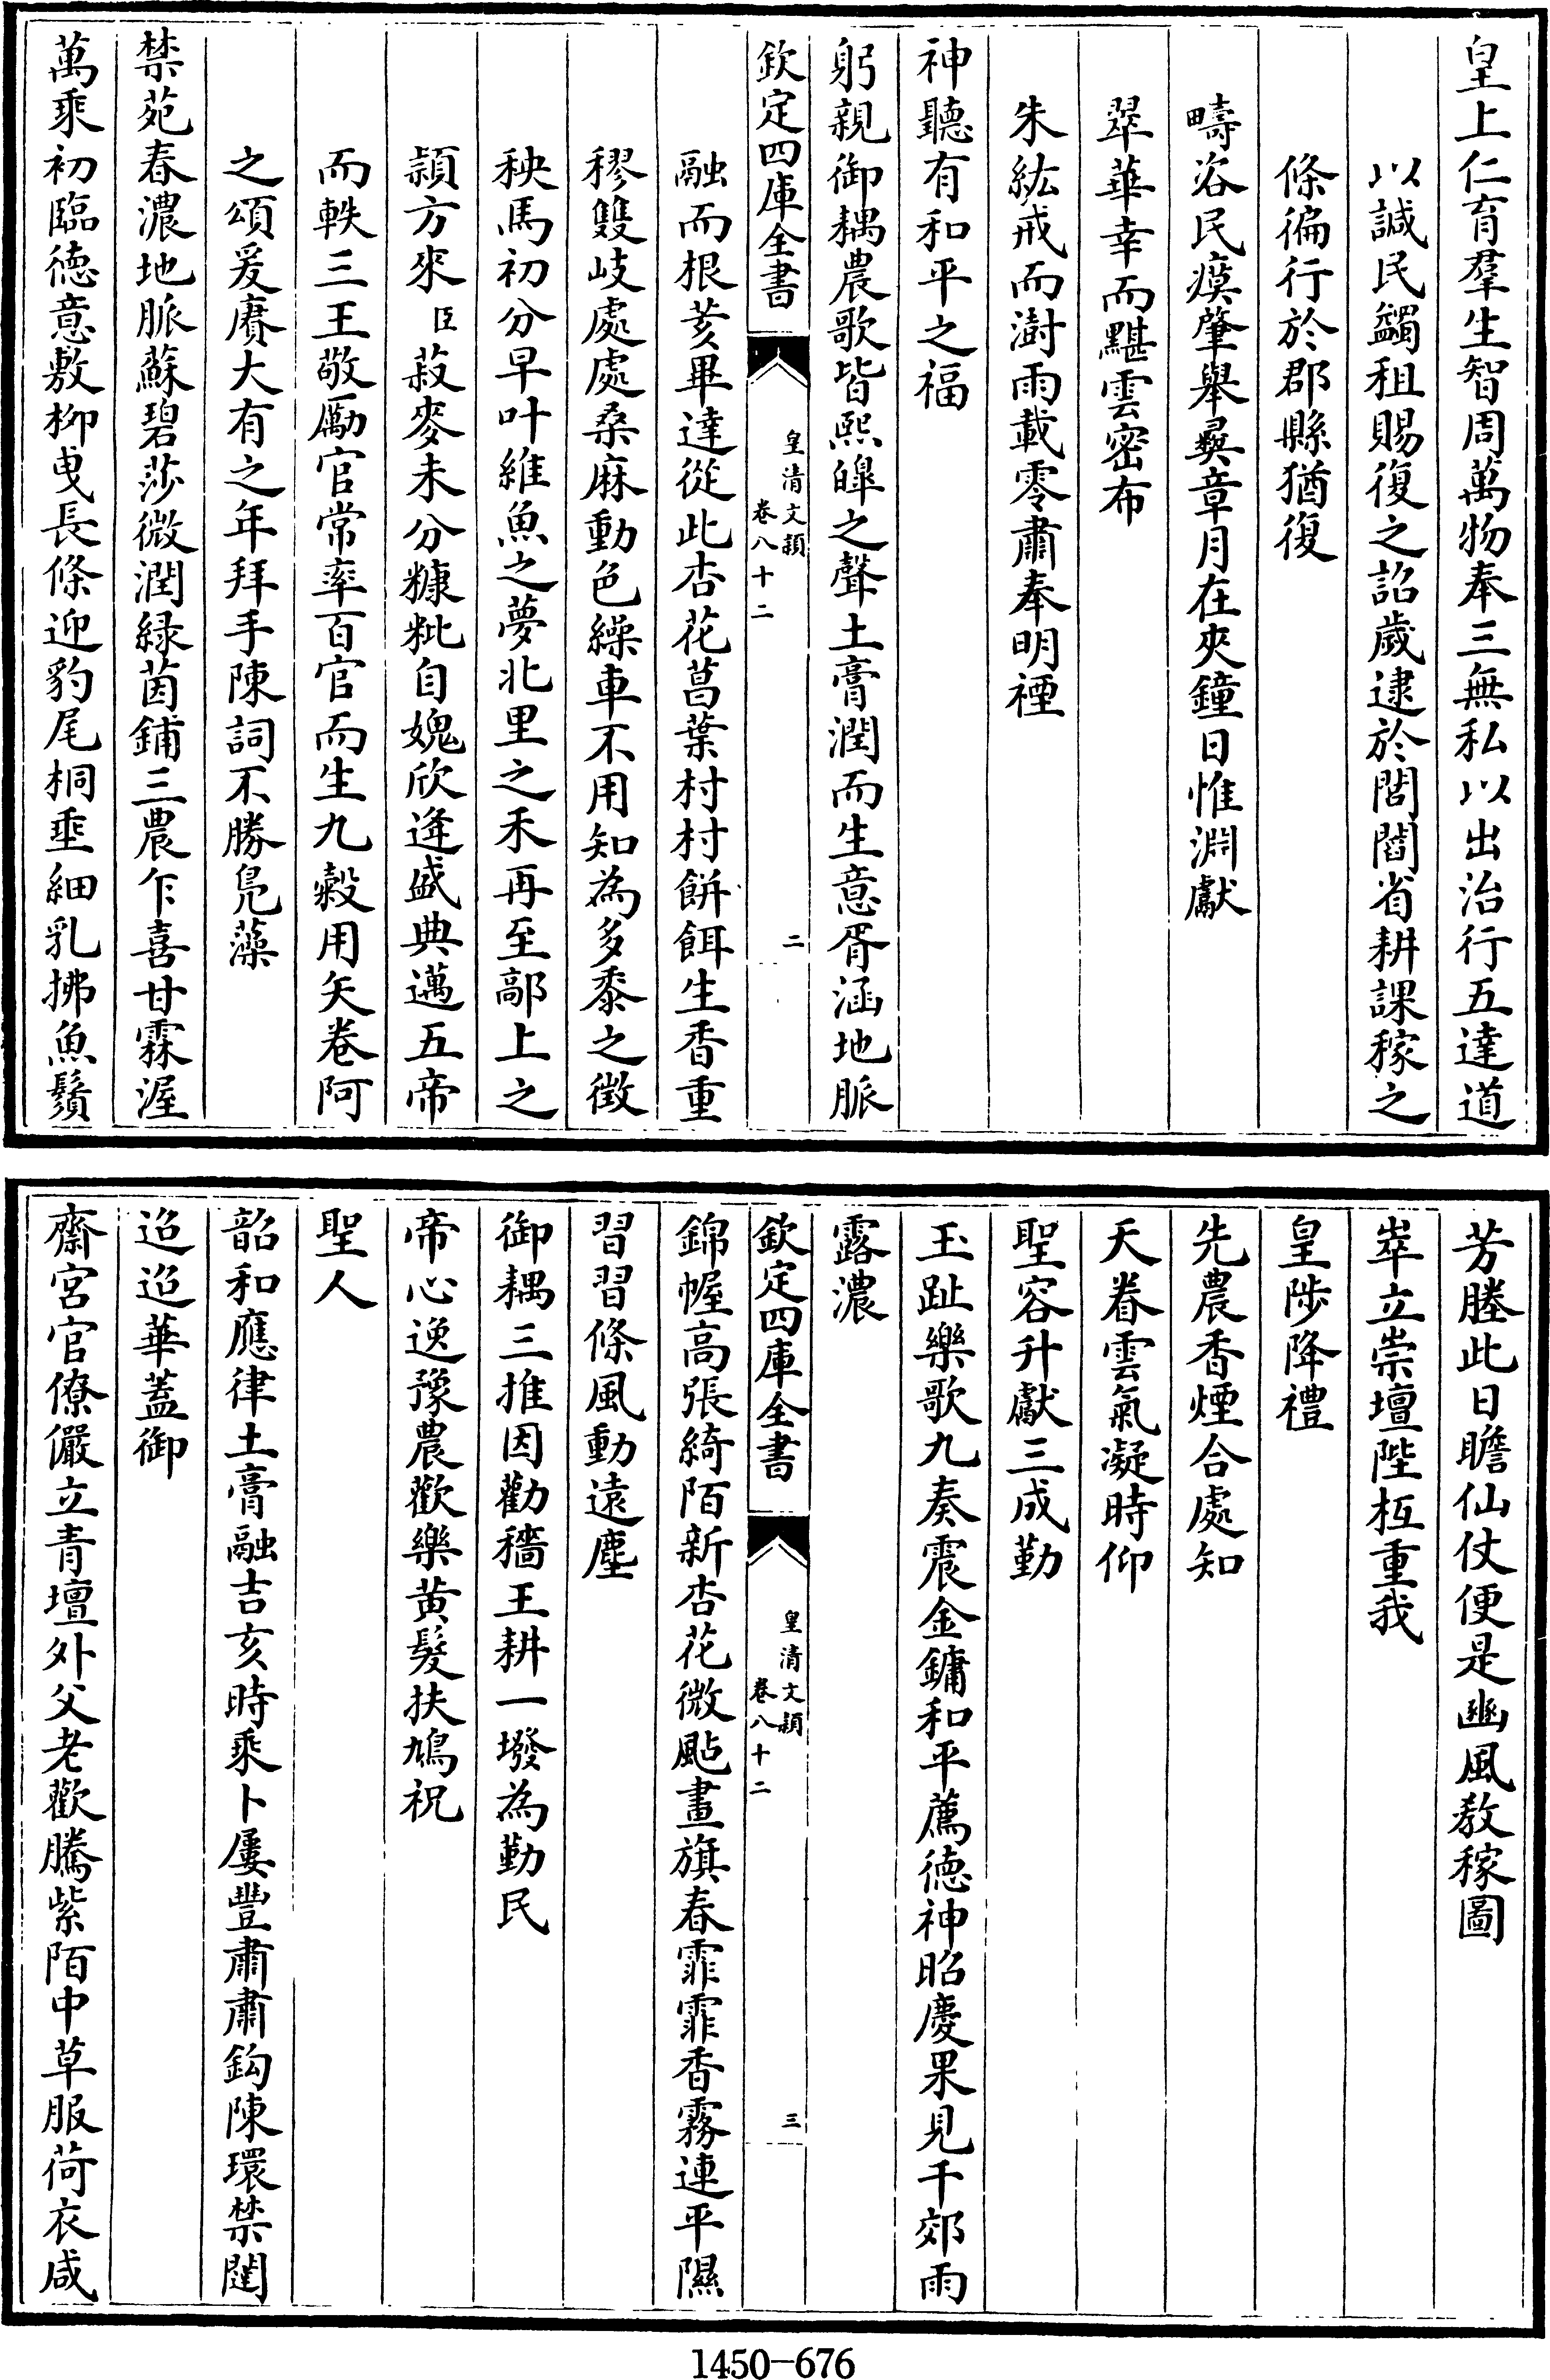 皇上仁育羣生智周萬物奉三無私以出治行五達道
以諴民蠲租賜復之詔歲逮於閭閻省耕課稼之
條徧行於郡縣猶復
疇咨民瘼肇舉彞章月在夾鐘日惟淵獻
翠華幸而黮雲密布
朱紘戒而澍雨載零肅奉明禋
神聽有和平之福
躬親御耦農歌皆熙皞之聲土膏潤而生意胥涵地脈
欽定四庫全書
皇清文穎
卷八十二
二
融而根荄畢達從此杏花菖葉村村餅餌生香重
穋雙岐處處桑麻動色繰車不用知為多黍之徵
秧馬初分早叶維魚之夢北里之禾再至鄗上之
穎方來臣菽麥未分糠粃自媿欣逢盛典邁五帝
而軼三王敬勵官常率百官而生九穀用矢卷阿
之頌爰賡大有之年拜手陳詞不勝鳧藻
禁苑春濃地脈蘇碧莎微潤緑茵鋪三農乍喜甘霖渥
萬乘初臨德意敷柳曳長條迎豹尾桐垂細乳拂魚鬚
芳塍此日瞻仙仗便是豳風教稼圖
崒立崇壇陛枑重我
皇陟降禮
先農香煙合處知
天眷雲氣凝時仰
聖容升獻三成勤
玉趾樂歌九奏震金鏞和平薦德神昭慶果見千郊雨
露濃
欽定四庫全書
皇清文穎
卷八十二
三
錦幄高張綺陌新杏花微颭畫旗春霏霏香霧連平隰
習習條風動遠塵
御耦三推因勸穡王耕一墢為勤民
帝心逸豫農歡樂黄髮扶鳩祝
聖人
韶和應律土膏融吉亥時乘卜屢豐肅肅鈎陳環禁闥
迢迢華蓋御
齋宮官僚儼立青壇外父老歡騰紫陌中草服荷衣咸
1450-676